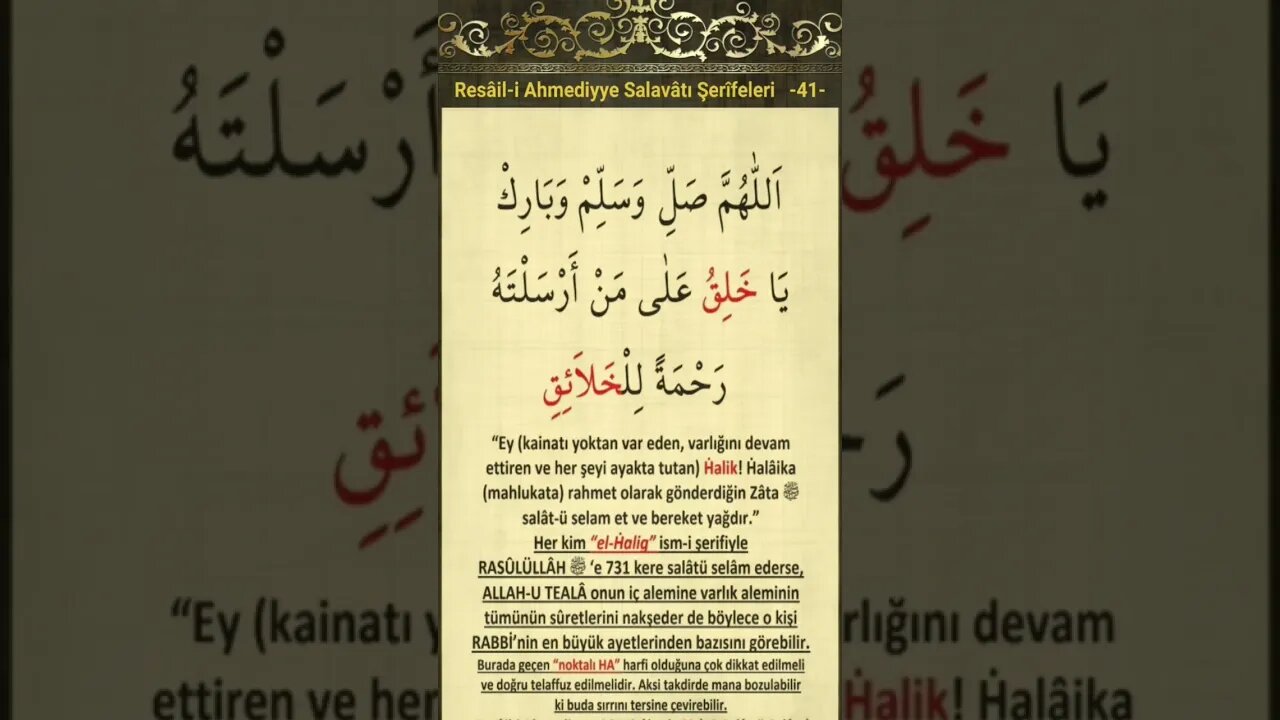 Resâil-i Ahmediyye Salavâtı Şerîfeleri -41-
اَللّٰهُمَّ صَلِّ وَسَلِّمْ وَبَارِكْ
يَا خَلِقُ عَلٰى مَنْ أَرْسَلْتَهُ
رَحْمَةً لِلْخَلاَئِقِ
“Ey (kainatı yoktan var eden, varlığını devam
ettiren ve her şeyi ayakta tutan) Ḣalik! Ḣalâika
(mahlukata) rahmet olarak gönderdiğin Zâta ﷺ
salât-ü selam et ve bereket yağdır.”
Her kim “el-Ḣalig” ism-i şerifiyle
RASÛLÜLLÂH ﷺ ‘e 731 kere salâtü selâm ederse,
ALLAH-U TEALÂ onun iç alemine varlık aleminin
tümünün sûretlerini nakşeder de böylece o kişi
RABBİ’nin en büyük ayetlerinden bazısını görebilir.
Burada geçen “noktalı HA” harfi olduğuna çok dikkat edilmeli
ve doğru telaffuz edilmelidir. Aksi takdirde mana bozulabilir
ki buda sırrını tersine çevirebilir.